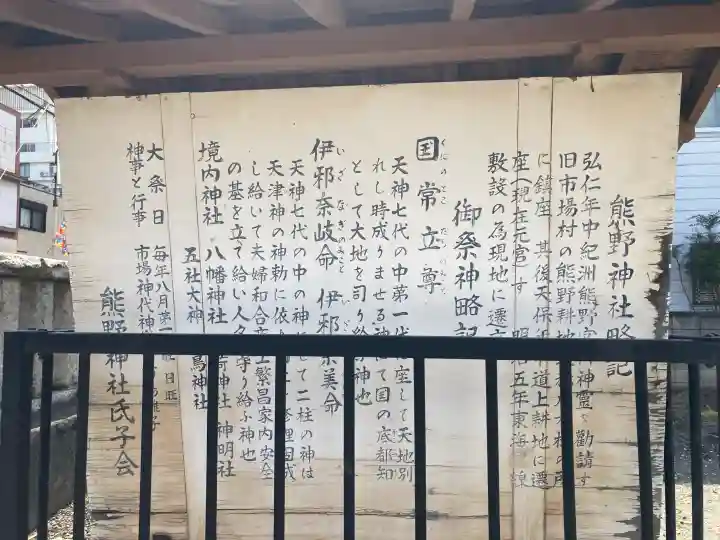 熊野神社略記
弘仁年中紀洲熊野宮 神霊を勧請す
旧市場村の熊野耕地
に鎮座 其後天保 街道上耕地に遷
座(現在元宮)す 明治五年東海 線
敷設の為現地に遷
御祭神略記
国常立尊
くにのとこたちのみこと
天神七代の中第一代 座して天地別
れし時成りませる神 て国の底都知
として大地を司り給 神也
伊邪奈岐命 伊邪奈美命
いざなぎのみこと いざ
天神七代の中の神 して二柱の神は
天津神の神勅に依 修理固成
し給いて夫婦和合 繁昌家内安全
の基を立て給い人 守り給ふ神也
境内神社 八幡神社 神社 神明社
五社大神 神社
大祭日 毎年八月第 日曜
神事と行事 市場神代神 囃子
熊野神社氏子会